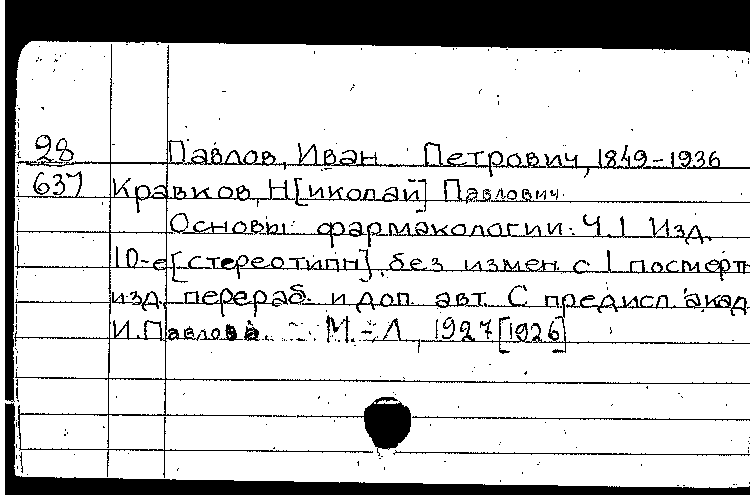 28 Павлов, Иван Петрович, 1849-1936
637 Кравков, Н[иколай] Павлович.
Основы фармакологии. Ч.1 Изд.
10-е[стереотипн], без измен с 1 посмертн
изд. перераб. и доп. авт. С предисл. акад
И. Павлова. М.-Л, 1927[1926]